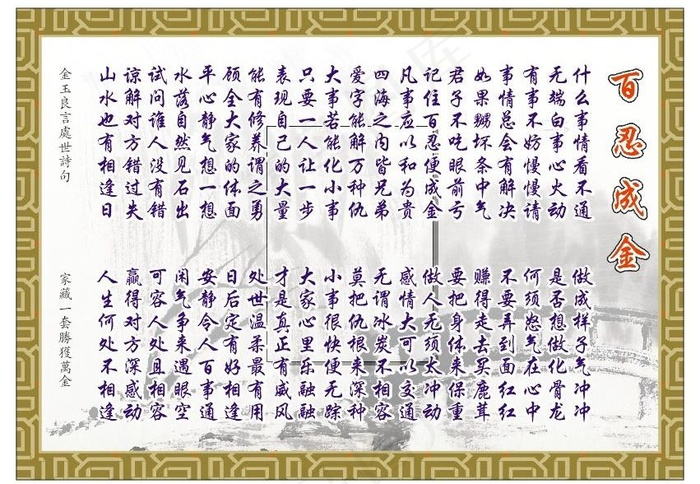 百忍成金
什么事情看不通
做成样子气冲冲
无端向事心火动
是否想做化骨龙
有事不妨慢慢请
何须怒气在心中
事情总会有解决
不要弄到面红红
如果掰坏条中气
赚得走去买鹿茸
君子不吃眼前亏
要把身体来保重
记住百忍便成金
做人无须太冲动
凡事应以和为贵
感情大可以交通
四海之内皆兄弟
无谓冰炭不相容
爱字能解万种仇
莫把仇根来深种
大事若能化小事
小事很快便无踪
只要一人让一步
大家心里乐融融
表现自己的大量
才是真正有威风
能有修养谓之勇
处世温柔最有用
顾全大家的体面
日后定有好相逢
平心静气想一想
安静令人百事通
水落自然见石出
闲气争来遇眼空
试问谁人没有错
可容人处且相容
谅解对方错过失
赢得对方深感动
山水也有相逢日
人生何处不相逢
金玉良言處世詩句
家藏一套勝獲萬金